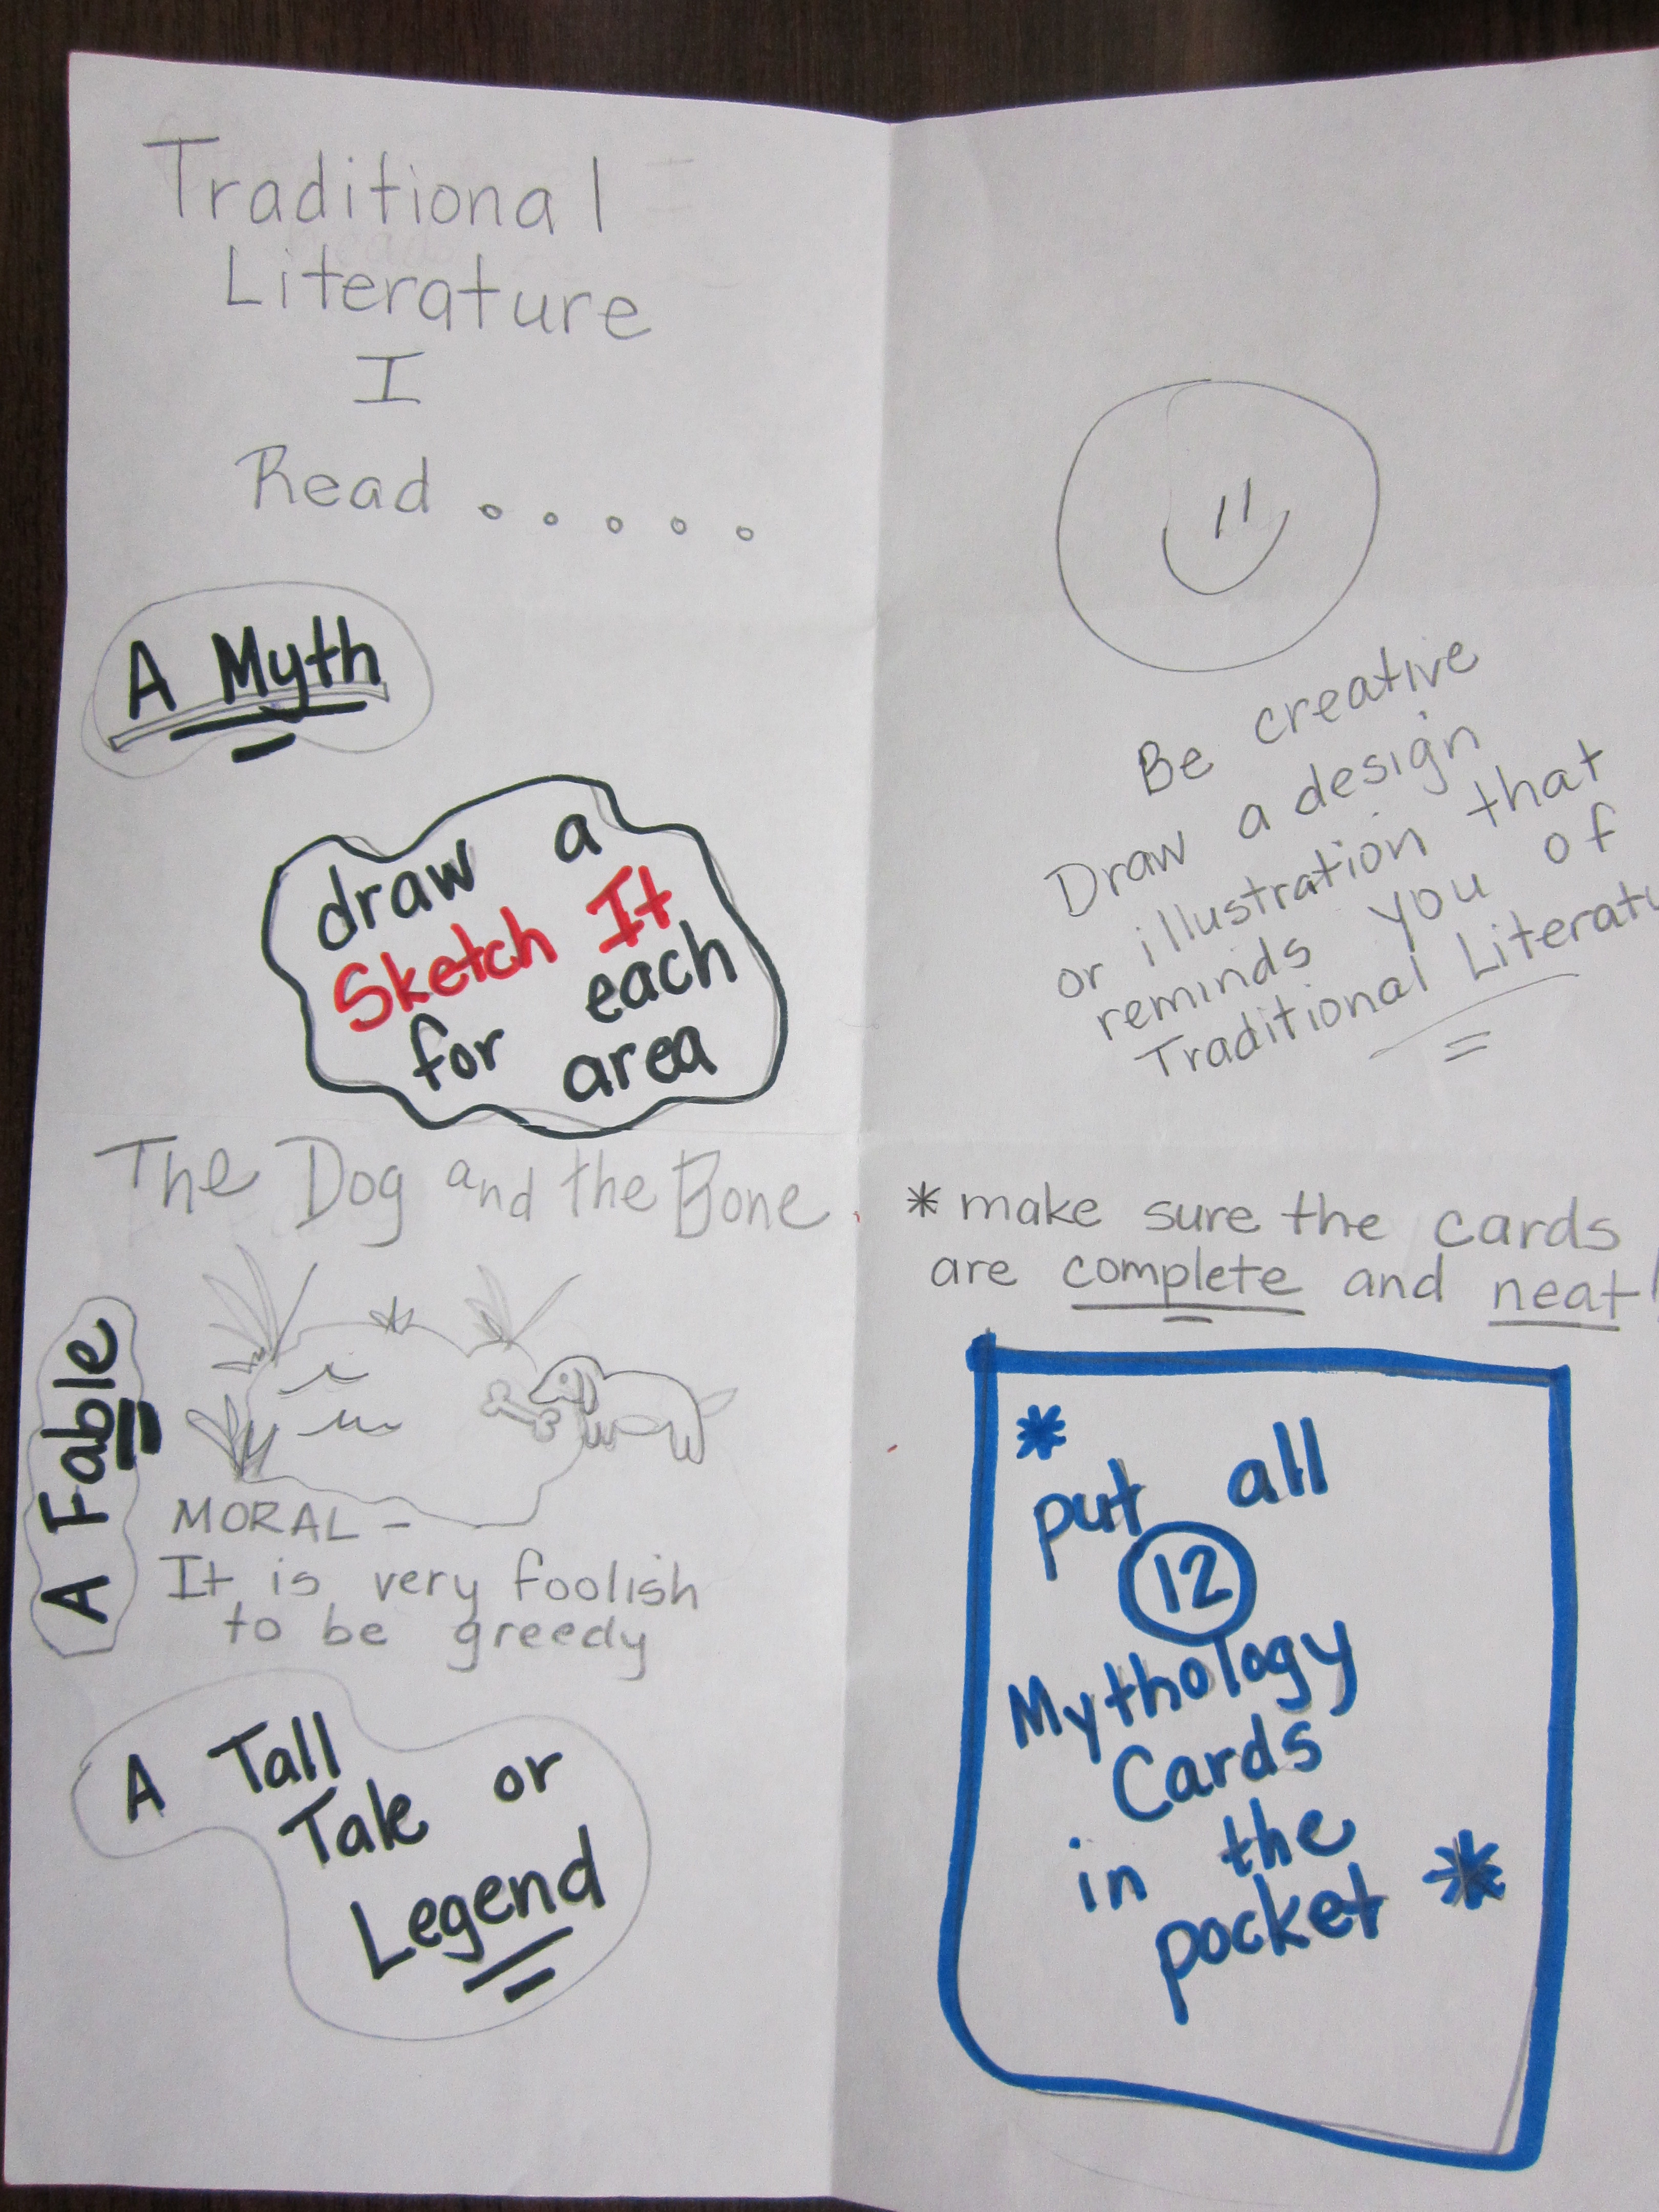 Traditional
Literature
I
Read . . . . .
A Myth
draw a
Sketch It
for each
area
The Dog and the Bone
A Fable
MORAL -
It is very foolish
to be greedy
A Tall
Tale or
Legend
Be creative
Draw a design
or illustration that
reminds you of
Traditional Literatu
* make sure the cards
are complete and neat!
*
put all
12
Mythology
Cards
in the
pocket *